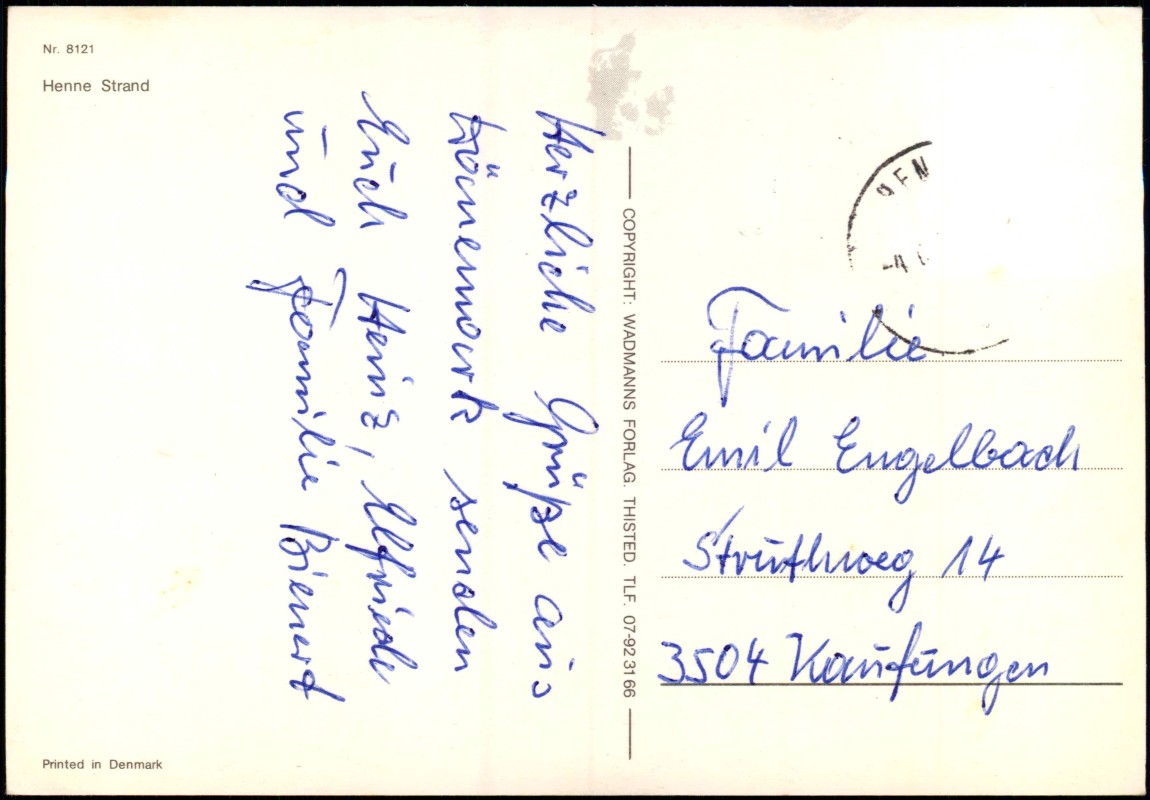 Nr. 8121
Henne Strand
Herzliche Grüße aus
Dänemark senden
Euch Heinz, Elfriede
und Familie Bienert
COPYRIGHT: WADMANNS FORLAG. THISTED. TLF. 07-92 31 66
Familie
Emil Engelbach
Struthweg 14
3504 Kaufungen
Printed in Denmark